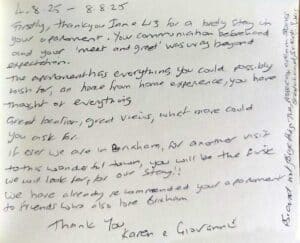 4.8.25 - 8.8.25
Firstly, thankyou Jane for a lovely stay in
your apartment. Your communication beforehand
and your 'meet and greet' was way beyond
expectation.
The apartment has everything you could possibly
wish for, a home from home experience, you have
thought of everything
Great location, great views, what more could
you ask for.
If ever we are in Brixham, for another visit
to this wonderful town, you will be the first
we will look for, for our stay!
We have already recommended your apartment
to friends who also love Brixham
Thank You
Karen & Giovanni